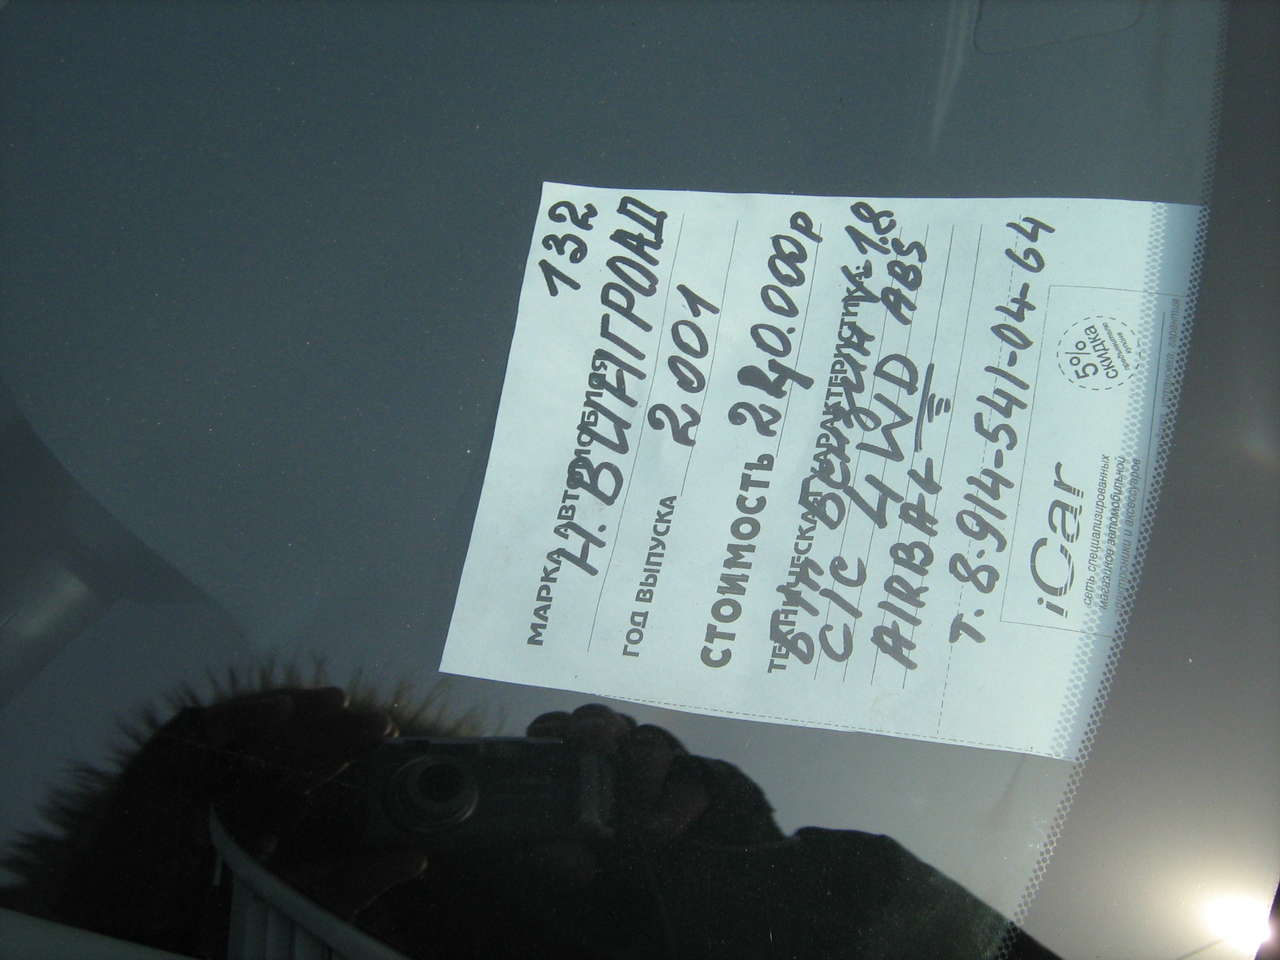 132
МАРКА АВТОМОБИЛЯ
Н. ВИНГРОАД
ГОД ВЫПУСКА 2001
СТОИМОСТЬ 240.000р
ТЕХНИЧЕСКАЯ ХАРАКТЕРИСТИКА
1.8
С/С 4WD ABS
AIRBAG
т. 8-914-541-04-64
iCar
сеть специализированных
магазинов автомобильной
электроники и аксессуаров
5%
СКИДКА